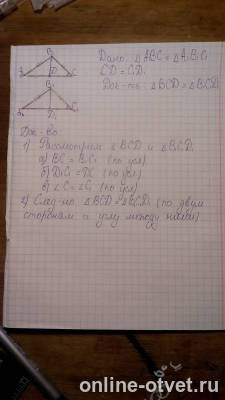 Дано: △ABC = △A₁B₁C₁
CD = C₁D₁
Док-ть: △BCD = △B₁C₁D₁
B
A D C
B₁
A₁ D₁ C₁
Док-во:
1) Рассмотрим △BCD и △B₁C₁D₁
а) BC = B₁C₁ (по усл)
б) D₁C₁ = DC (по усл)
в) ∠C = ∠C₁ (по усл)
2) След-но △BCD = △B₁C₁D₁ (по двум
сторонам и углу между ними)
online-otvet.ru